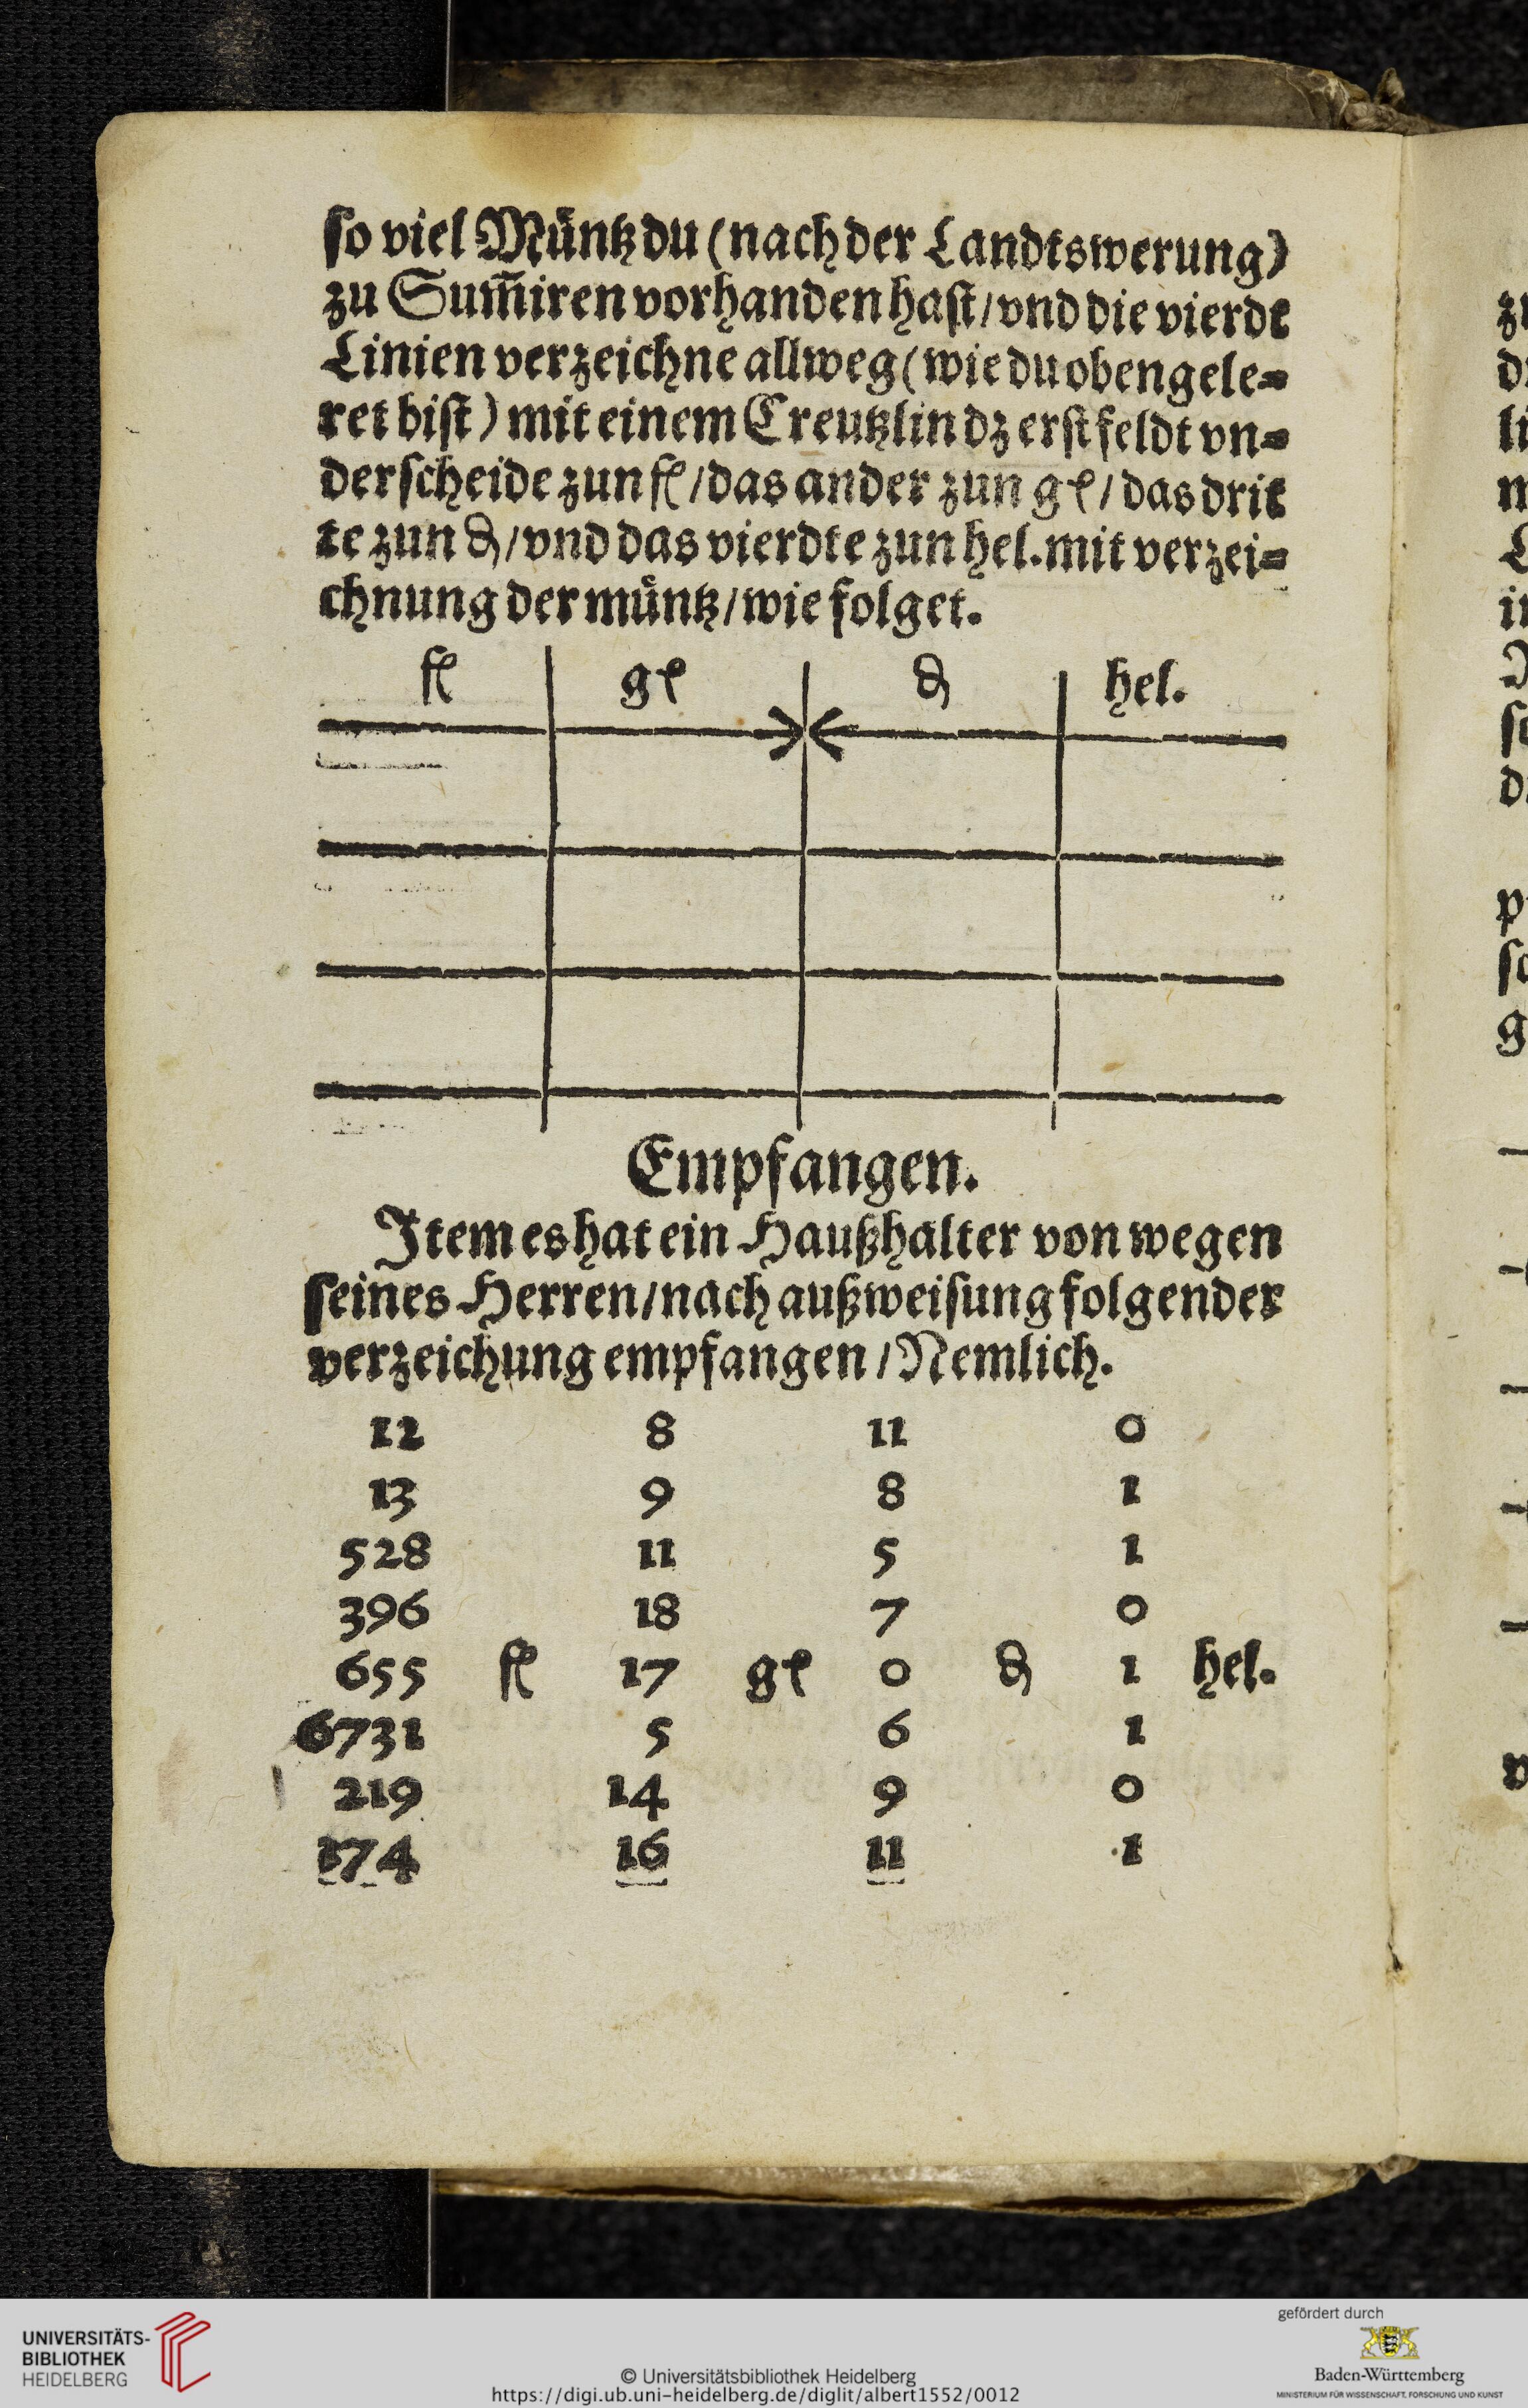 so viel Müntz du (nach der Landtswerung)
zu Sum̃iren vorhanden hast / vnd die vierdt
Linien verzeichne allweg (wie du oben gele⸗
ret bist) mit einem Creutzlin dz erst feldt vn⸗
derscheide zun fl / das ander zun gl / das drit
te zun ₰ / vnd das vierdte zun hel. mit verzei⸗
chnung der müntz / wie folget.
fl gl ₰ hel.
Empfangen.
Item es hat ein Haußhalter von wegen
seines Herren / nach außweisung folgender
verzeichung empfangen / Nemlich.
12 8 11 0
13 9 8 1
528 11 5 1
396 18 7 0
655 fl 17 gl 0 ₰ 1 hel.
6731 5 6 1
219 14 9 0
174 16 11 1
UNIVERSITÄTS-
BIBLIOTHEK
HEIDELBERG
© Universitätsbibliothek Heidelberg
https://digi.ub.uni-heidelberg.de/diglit/albert1552/0012
gefördert durch
Baden-Württemberg
MINISTERIUM FÜR WISSENSCHAFT, FORSCHUNG UND KUNST